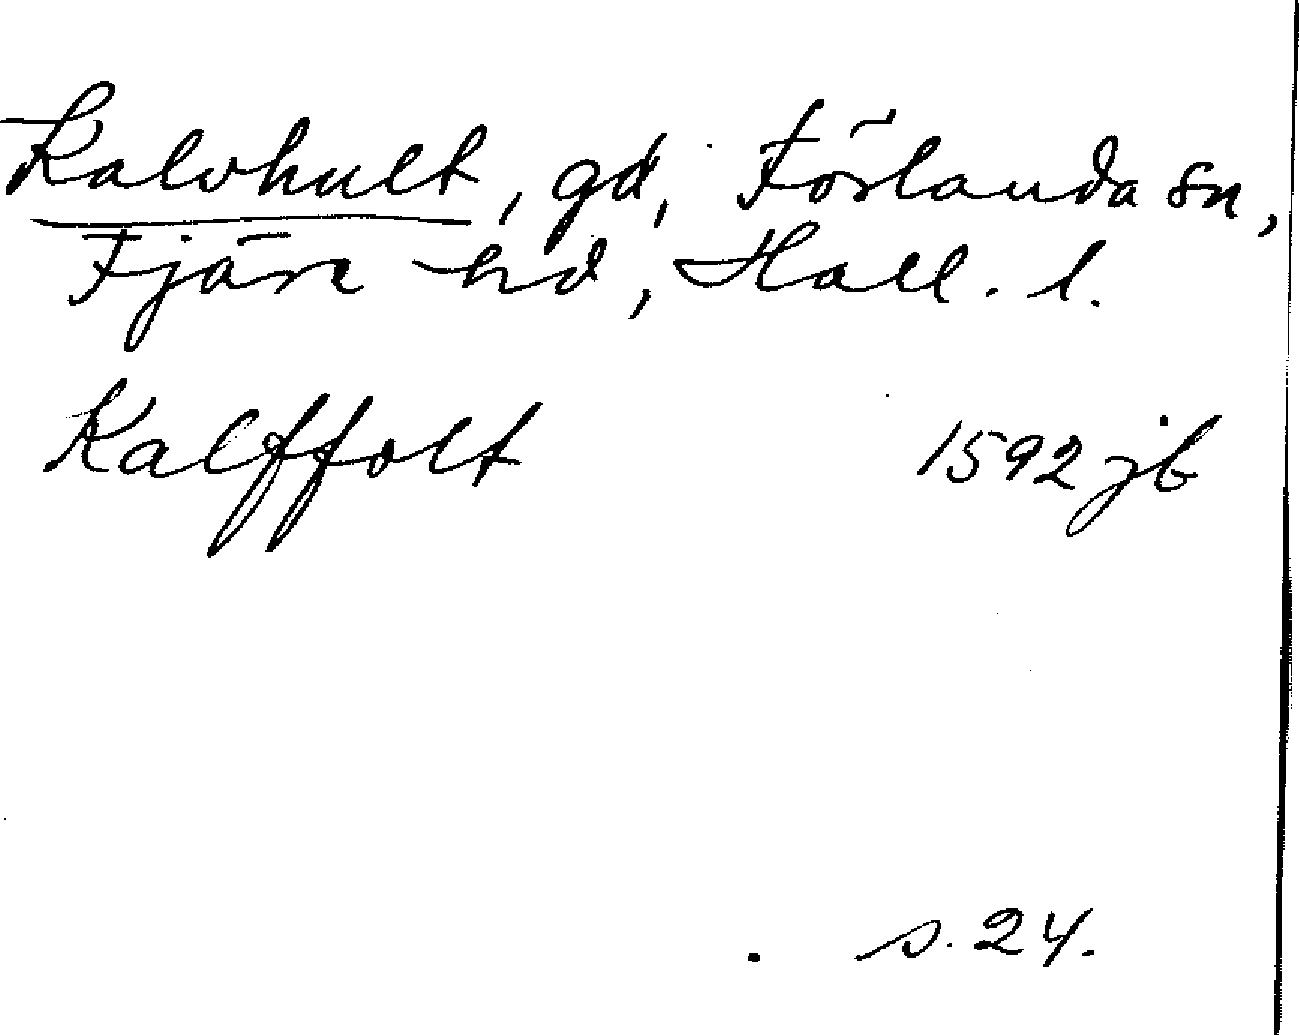 Kalvhult, gd, Förlanda sn,
Fjäre hd, Hall. l.
Kalffolt 1592 jb
s. 24.